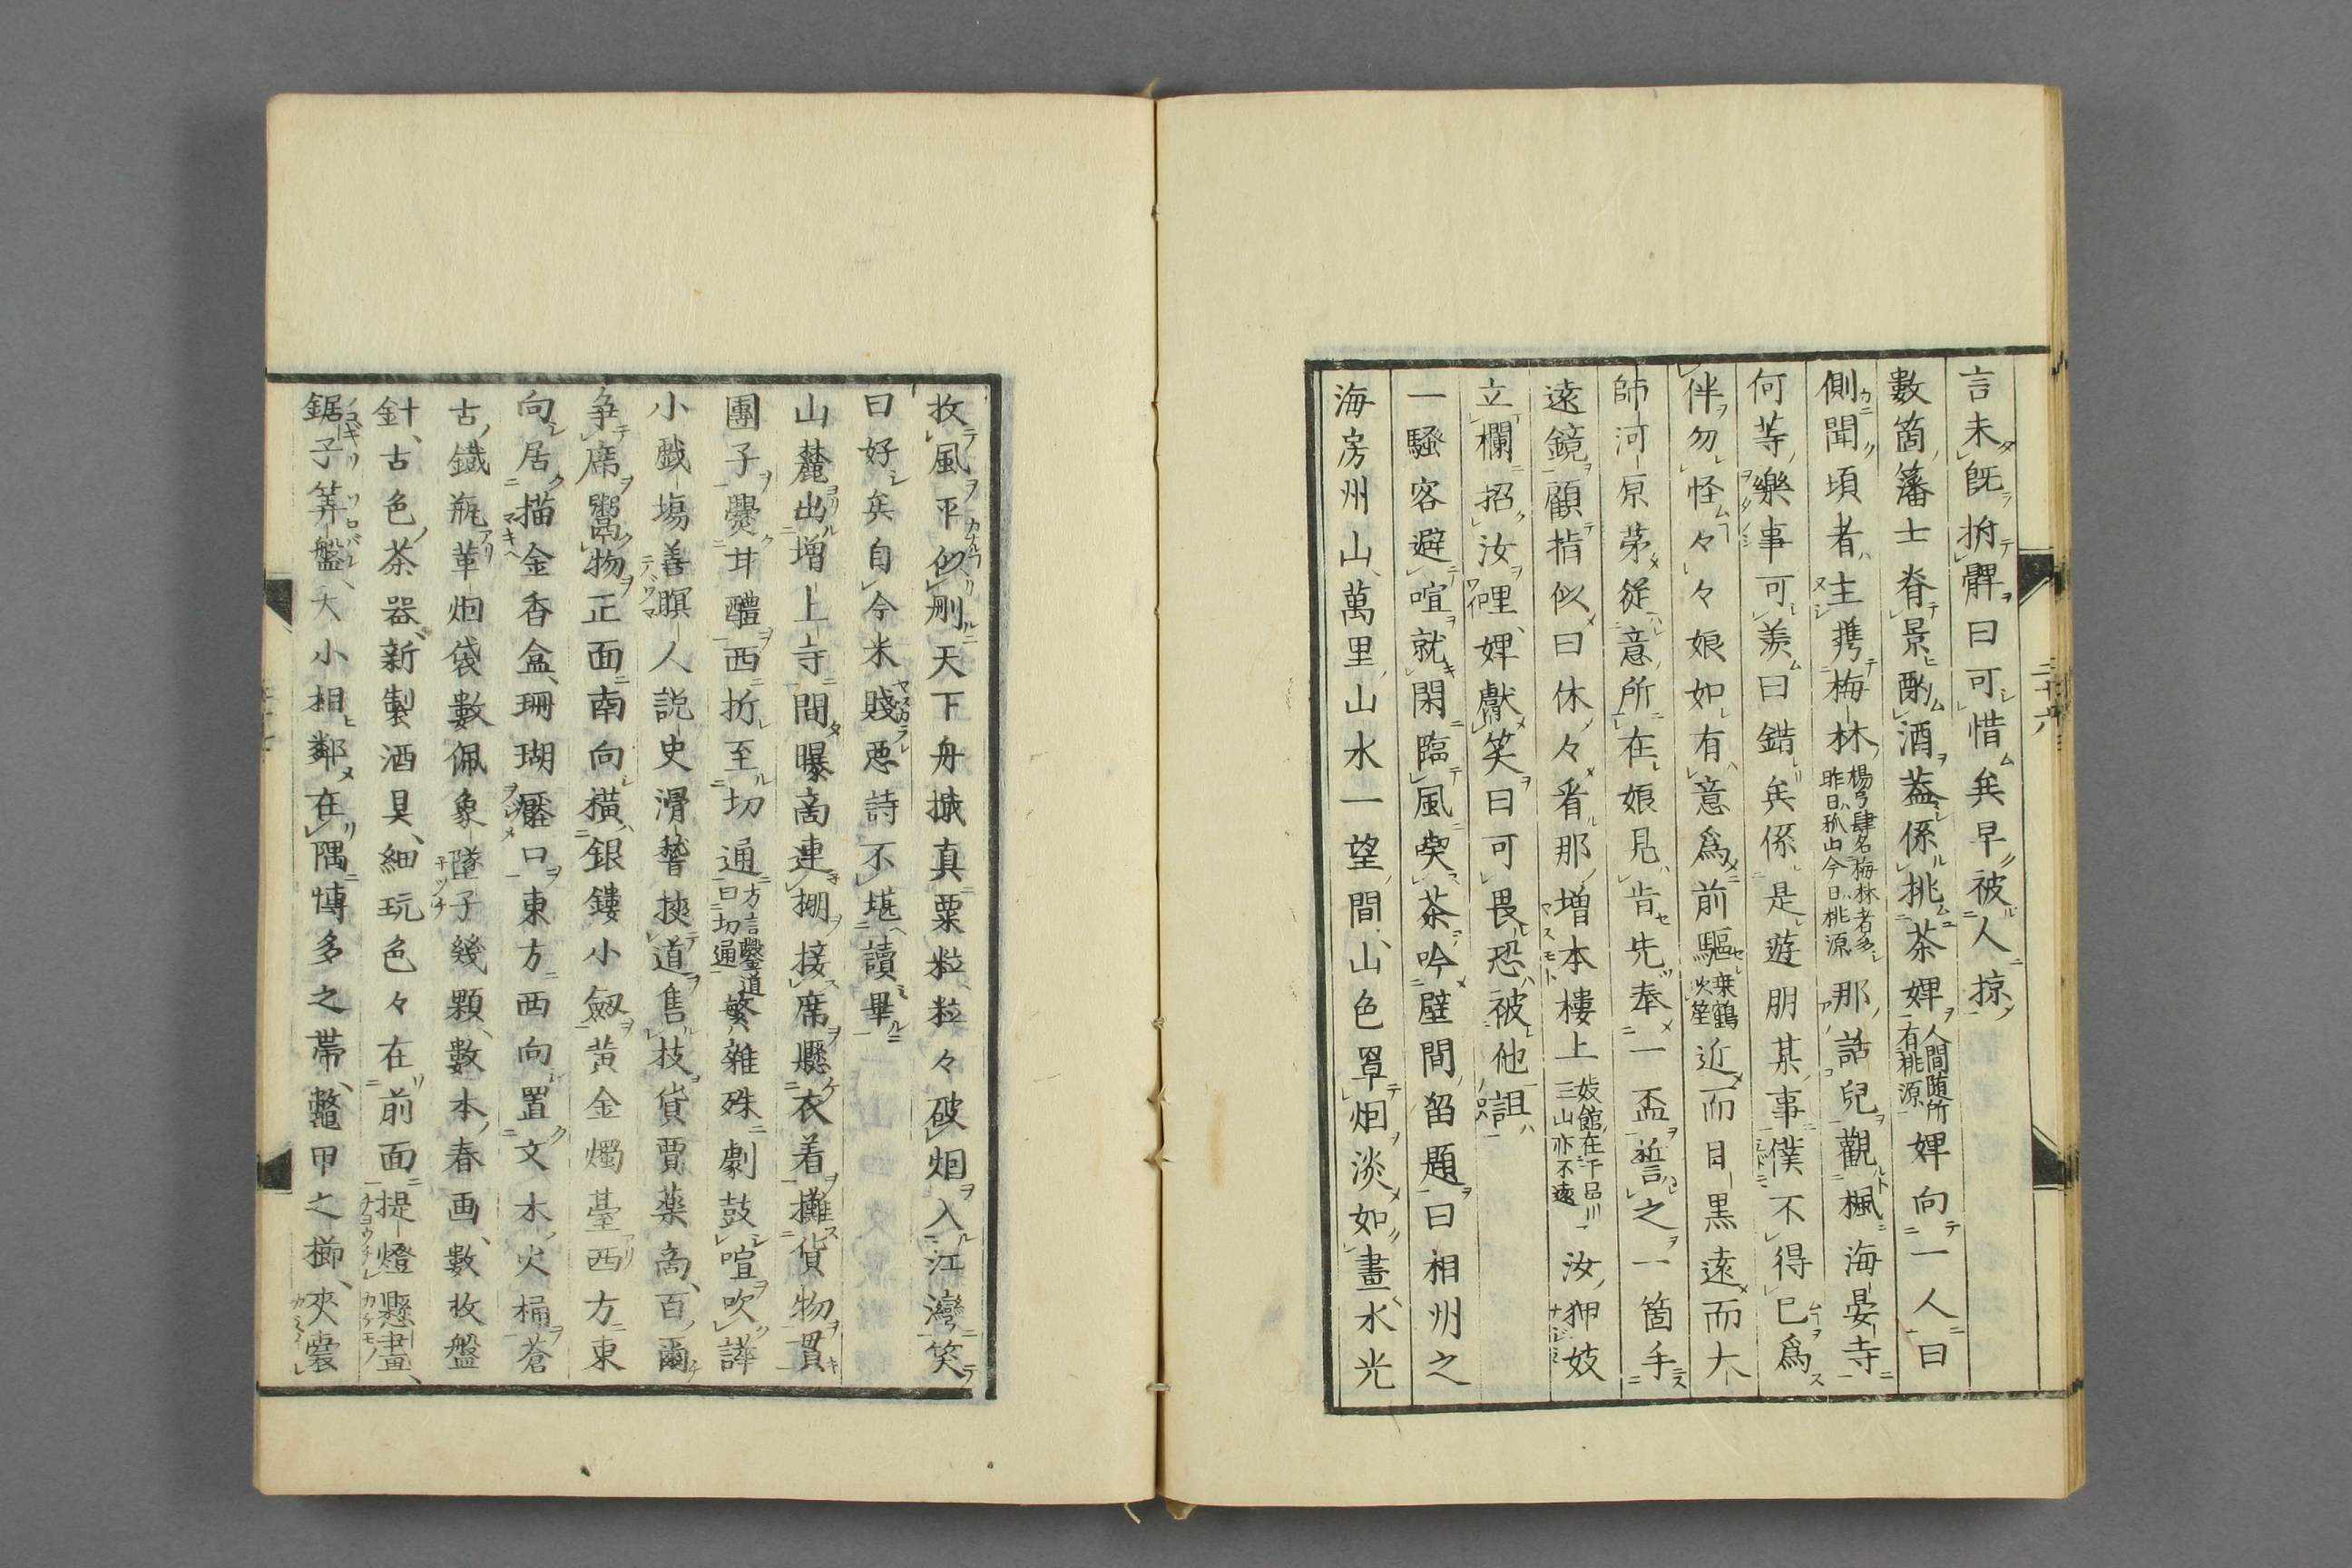 言未既拊髀曰可惜矣早被人掠
數箇藩士脊景酌酒蓋係挑茶婢人間随所有桃源婢向一人曰
側聞頃者主携梅林楊弓肆名梅林者多昨日孤山今日桃源那話兒觀楓海晏寺
何等樂事可羨曰錯矣係是遊朋某事僕不得已爲
伴勿怪々々娘如有意爲前驅乗鶴吹笙近而目黒遠而大
師河原苐從意所在娘見肯先奉一盃誓之一箇手
遠鏡顧指似曰休々看那増本樓上妓館在下品川三山亦不遠汝狎妓
立欄招汝哩婢獻笑曰可畏恐被他詛
一騷客避喧就閑臨風喫茶吟壁間留題曰相州之
海房州山萬里山水一望間山色罩烟淡如畫水光
收風平似刪天下舟檝真粟粒粒々破烟入江灣笑
曰好矣自今米賤惡詩不堪讀畢
山麓出増上寺間曝啇連棚接席懸衣着攤貨物貫
團子爨甘醴西折至切通方言鑿道曰切通繁雜殊劇鼓喧吹譁
小戯塲善瞑人説史滑稽挾道售技貨賈藥啇百爾
争席鬻物正面南向横銀鏤小劔黄金燭臺西方東
向居描金香盒珊瑚壓口東方西向置文木火桶蒼
古鐵瓶革烟袋數佩象墜子幾顆數本春画數枚盤
針古色茶器新製酒具細玩色々在前面提燈懸畫
鋸子筭盤大小相鄰在隅愽多之帯鼈甲之櫛夾嚢